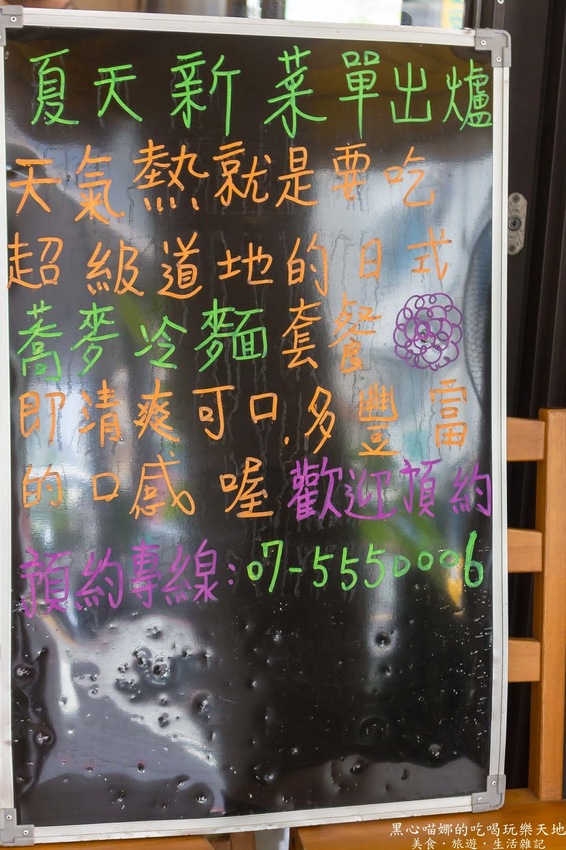 夏天新菜單出爐
天氣熱就是要吃
超級道地的日式
蕎麥冷麵套餐
即清爽可口.多豐富
的口感喔歡迎預約
預約專線:07-5550006
黑心喵娜的吃喝玩樂天地
美食·旅遊·生活雜記